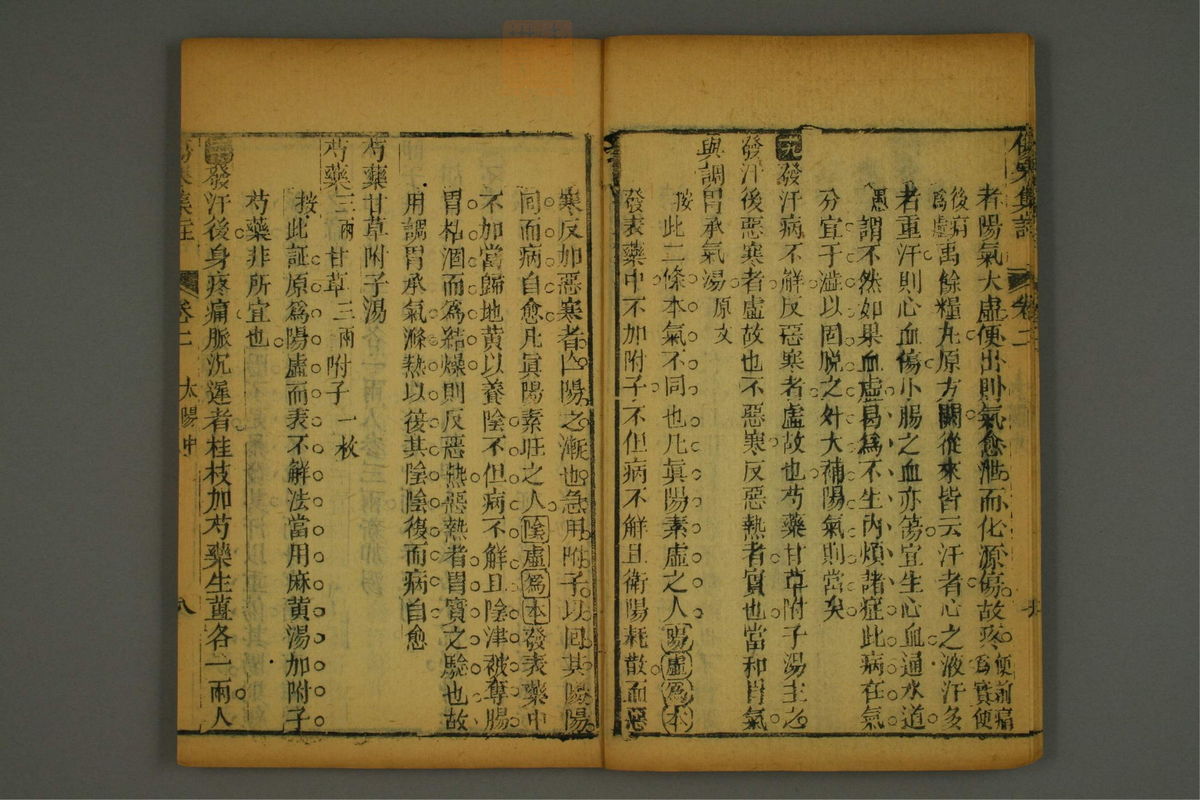 者陽氣大虛便出則氣愈泄而化源傷故疼便前痛爲實便
後病爲虛禹餘糧丸原方闕從來皆云汗者心之液汗多
者重汗則心血傷小腸之血亦傷宜生心血通水道
愚謂不然如果血虛曷爲不生內煩諸症此病在氣
分宜于澁以固脫之外大補陽氣則當矣
九發汗病不解反惡寒者虛故也芍藥甘草附子湯主之
發汗後惡寒者虛故也不惡寒反惡熱者實也當和胃氣
與調胃承氣湯原文
按此二條本氣不同也凡眞陽素虛之人陽虛爲本
發表藥中不加附子不但病不解且衛陽耗散而惡
寒反加惡寒者亡陽之漸也急用附子以回其陽陽
回而病自愈凡眞陽素旺之人陰虛爲本發表藥中
不加當歸地黃以養陰不但病不解且陰津被奪腸
胃枯涸而爲結燥則反惡熱惡熱者胃實之驗也故
用調胃承氣滌熱以復其陰陰復而病自愈
芍藥甘草附子湯
芍藥三兩甘草三兩附子一枚
按此証原爲陽虛而表不解法當用麻黃湯加附子
芍藥非所宜也
發汗後身疼痛脈沉遲者桂枝加芍藥生薑各一兩人
卷二
太陽中
八